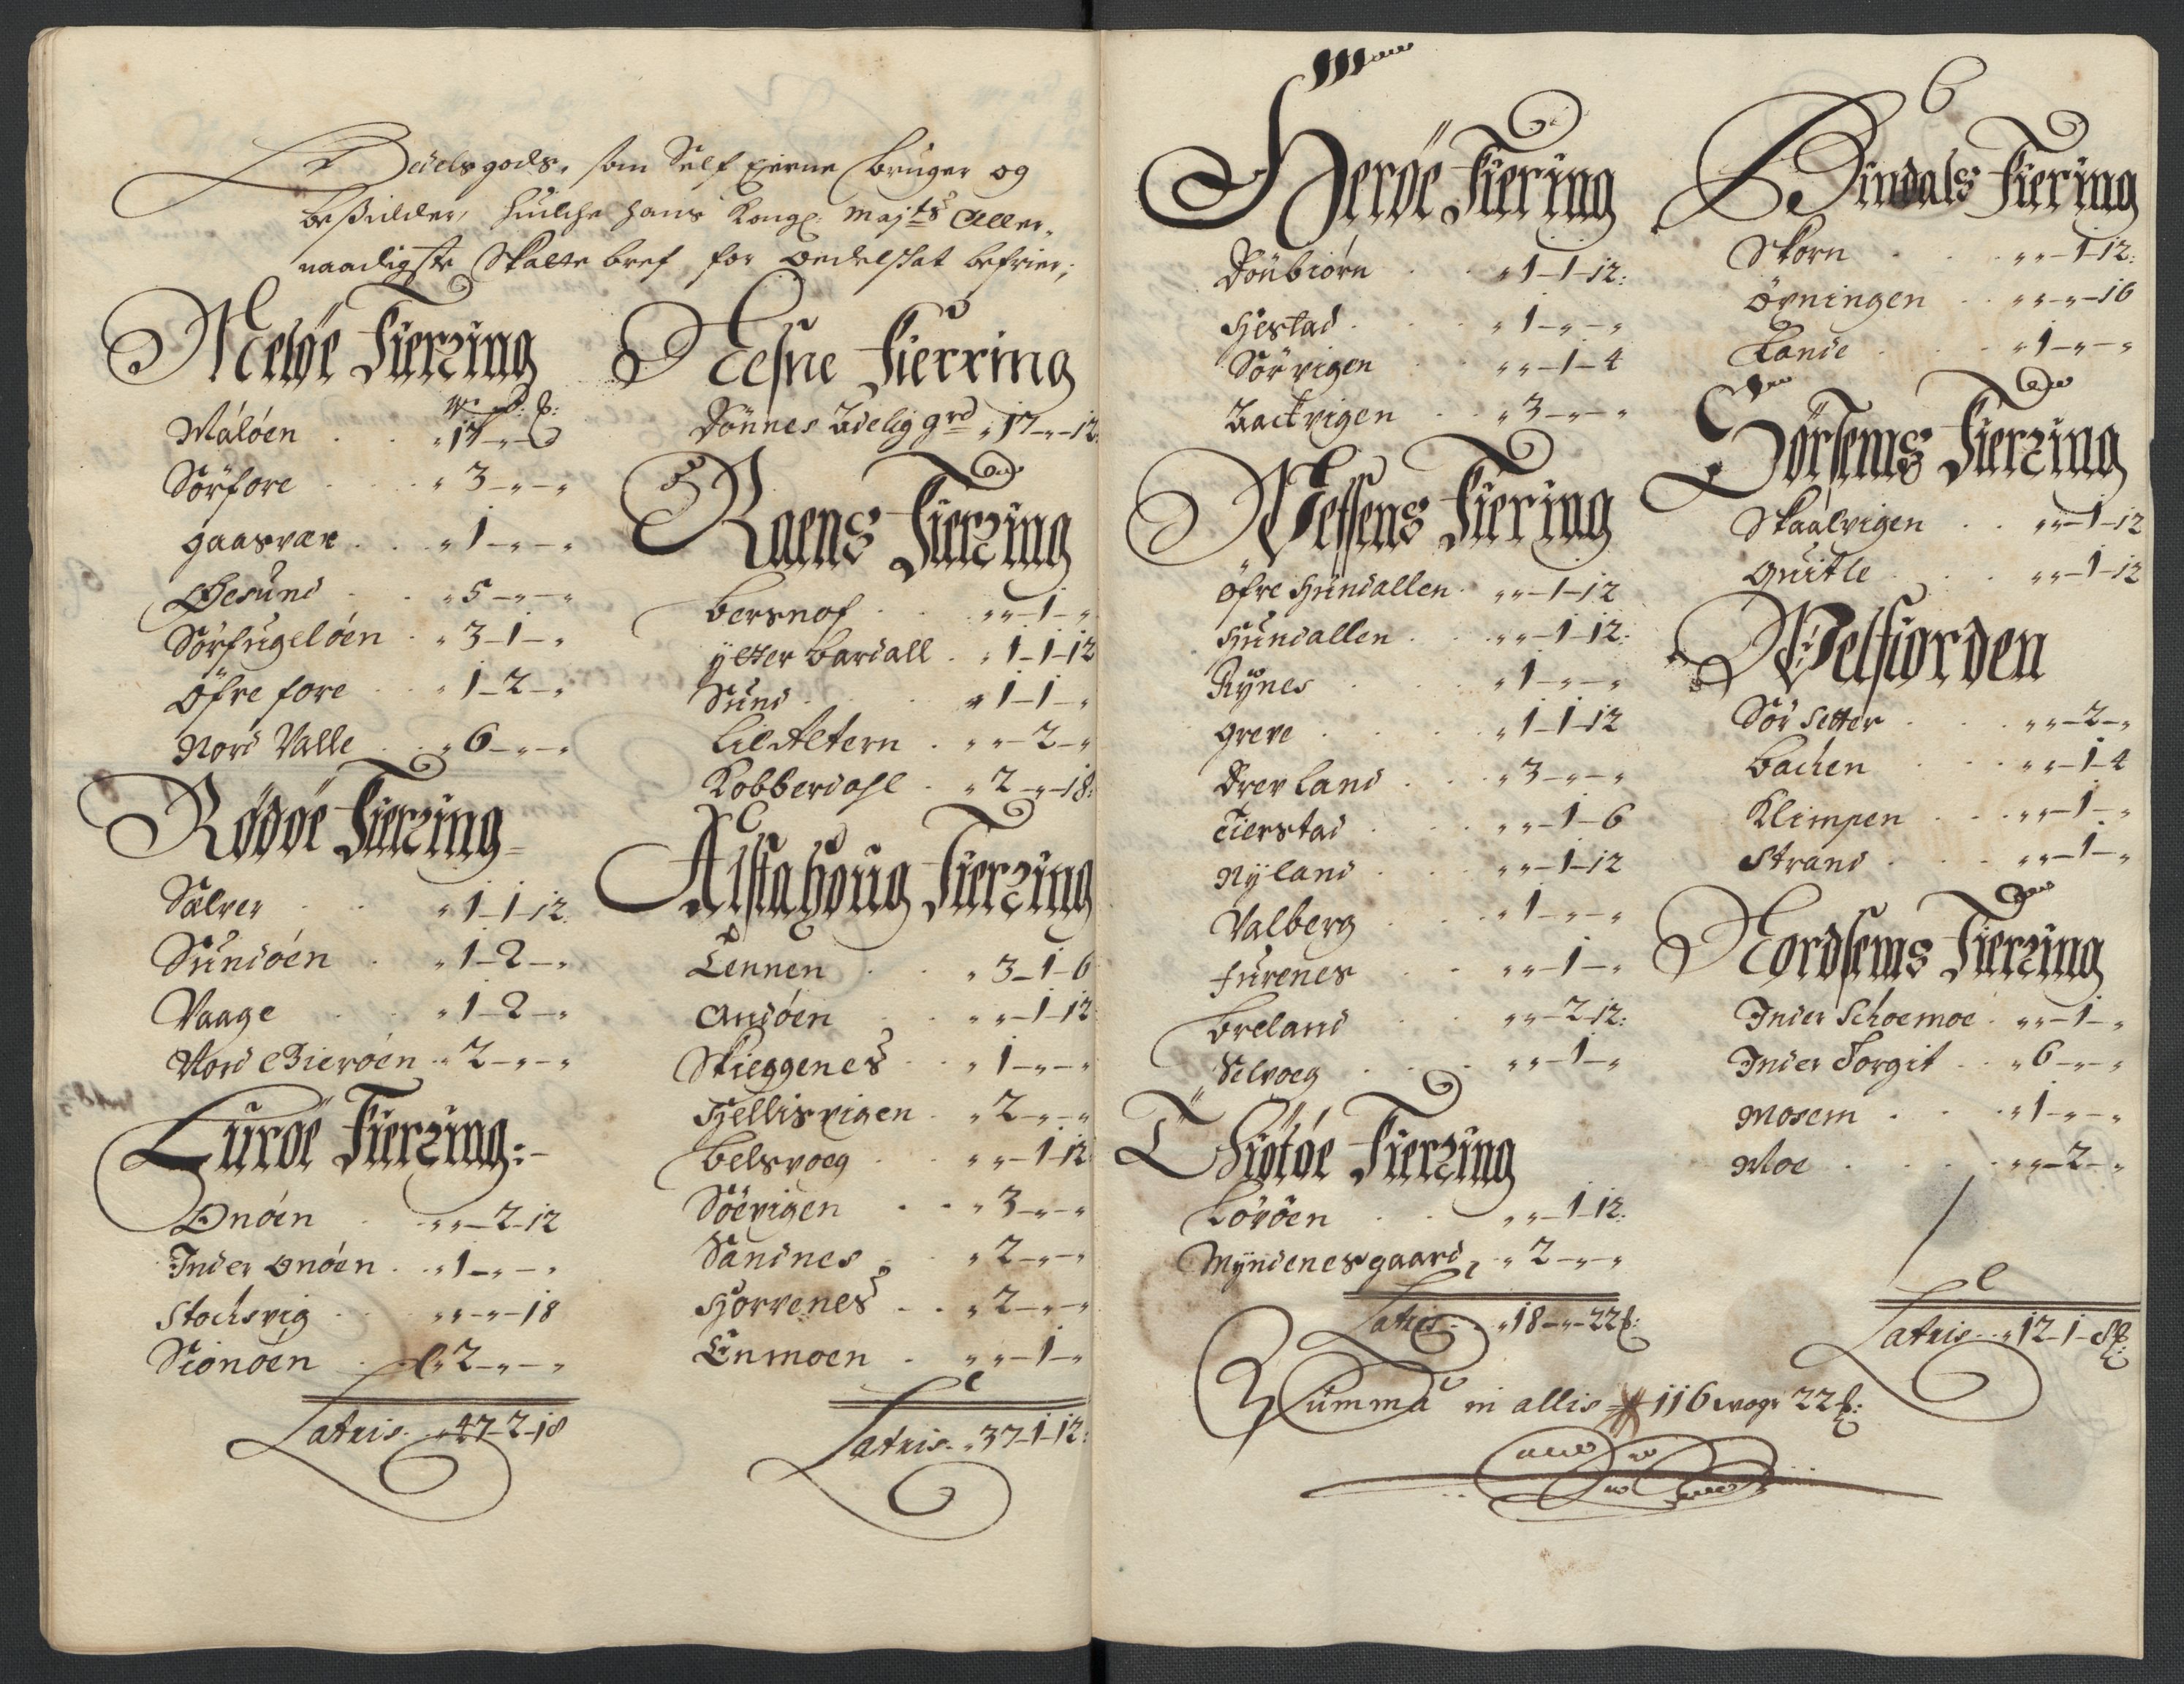 Odelsgods, som Self Eierne bruger og
besidder, huilche hans Kongl: Majts Aller-
naadigste Skatte bref for oedelskat befrier;
Meløe Fierring
W: pd: &:
Måløen . . „ 17 – „ – „
Sörfore . . „ 3 – „ – „
Gaasvær . . „ 1 – „ – „
Gesund . . „ 5 – „ – „
Sörfugeløen . „ 3 – 1 – „
Öfre fore . „ 1 – 2 – „
Nord Valle . „ 6 – „ – „
Rødøe Fierring
Sælver . . „ 1 – 1 – 12
Sundøen . „ 1 – 2 – „
Vaage . . „ 1 – 2 – „
Nord Bierøen . „ 2 – „ – „
Lurøe Fierring :-
Onøen . „ „ – 2 – 12
Inder Onøen . „ 1 – „ – „
Stochsvig . „ „ – „ – 18
Sionøen . „ 2 – „ – „
Latris . „ 47 – 2 – 18
Nesne Fierring
Dönnes Adelig grd „ 17 – „ – 12
Raens Fierring
Bersnof . „ „ – 1 – „
Ytter Bardall . „ 1 – 1 – 12
Sund . „ 1 – 1 – „
Lil Altern . „ „ – 2 – „
Kobberdahl . „ 2 – „ – 18:
Alstahoug Fierring
Tennen . „ 3 – 1 – 6
Andøen . „ „ – 1 – 12
Skieggenes . „ 1 – „ – „
Hellisvigen . „ 2 – „ – „
Belsvog . „ „ – 1 – 12
Söevigen . „ 3 – „ – „
Sandnes . „ 2 – „ – „
Horvenes . „ 2 – „ – „
Enmoen . „ „ – 1 – „
Latris . „ 37 – 1 – 12:
Herøe Fiering
Döübiörn . „ 1 – 1 – 12:
Hestad . „ 1 – „ – „
Sörvigen „ „ – 1 – 4
Backvigen . „ 3 – „ – „
Wefsens Fiering
Öfre Hundallen . „ „ – 1 – 12
Hundallen . „ „ – 1 – 12:
Rynes . „ 1 – „ – „
Greve . „ 1 – 1 – 12
Drevland . „ 3 – „ – „
Tierstad . „ „ – 1 – 6
Nyland . „ „ – 1 – 12
Valberg . „ 1 – „ – „
Furenes . „ „ – 1 – „
Breland . „ „ – 2 – 12:
Selvoeg . „ „ – 1 – „
Thiøtøe Fierring
Lövöen . „ „ – 1 – 12:
Myndenesgaard . „ 2 – „ – „
Latris . „ 18 – „ – 22 &:
6
Bindals Fiering
Skorn . „ „ – 1 – 12:
Övningen . „ „ – „ – 16
Lande . „ 1 – „ – „
Sörsems Fierring
Skaalvigen . „ „ – 1 – 12
Quitle . „ „ – 1 – 12
Welfiorden
Sör Setter . „ „ – 2 – „
Bachen . „ „ – 1 – 4
Klimpen . „ „ – 1 – „
Strand . „ „ – 1 – „
Nordsems Fierring
Inder Schoemoe . „ „ – 1 – „
Inder Torgit . „ 6 – „ – „
Mosem . „ 1 – „ – „
Moe . „ „ – 2 – „
Latris . „ 12 – 1 – 8 &:
Summa in allis 116 woger 22 &: